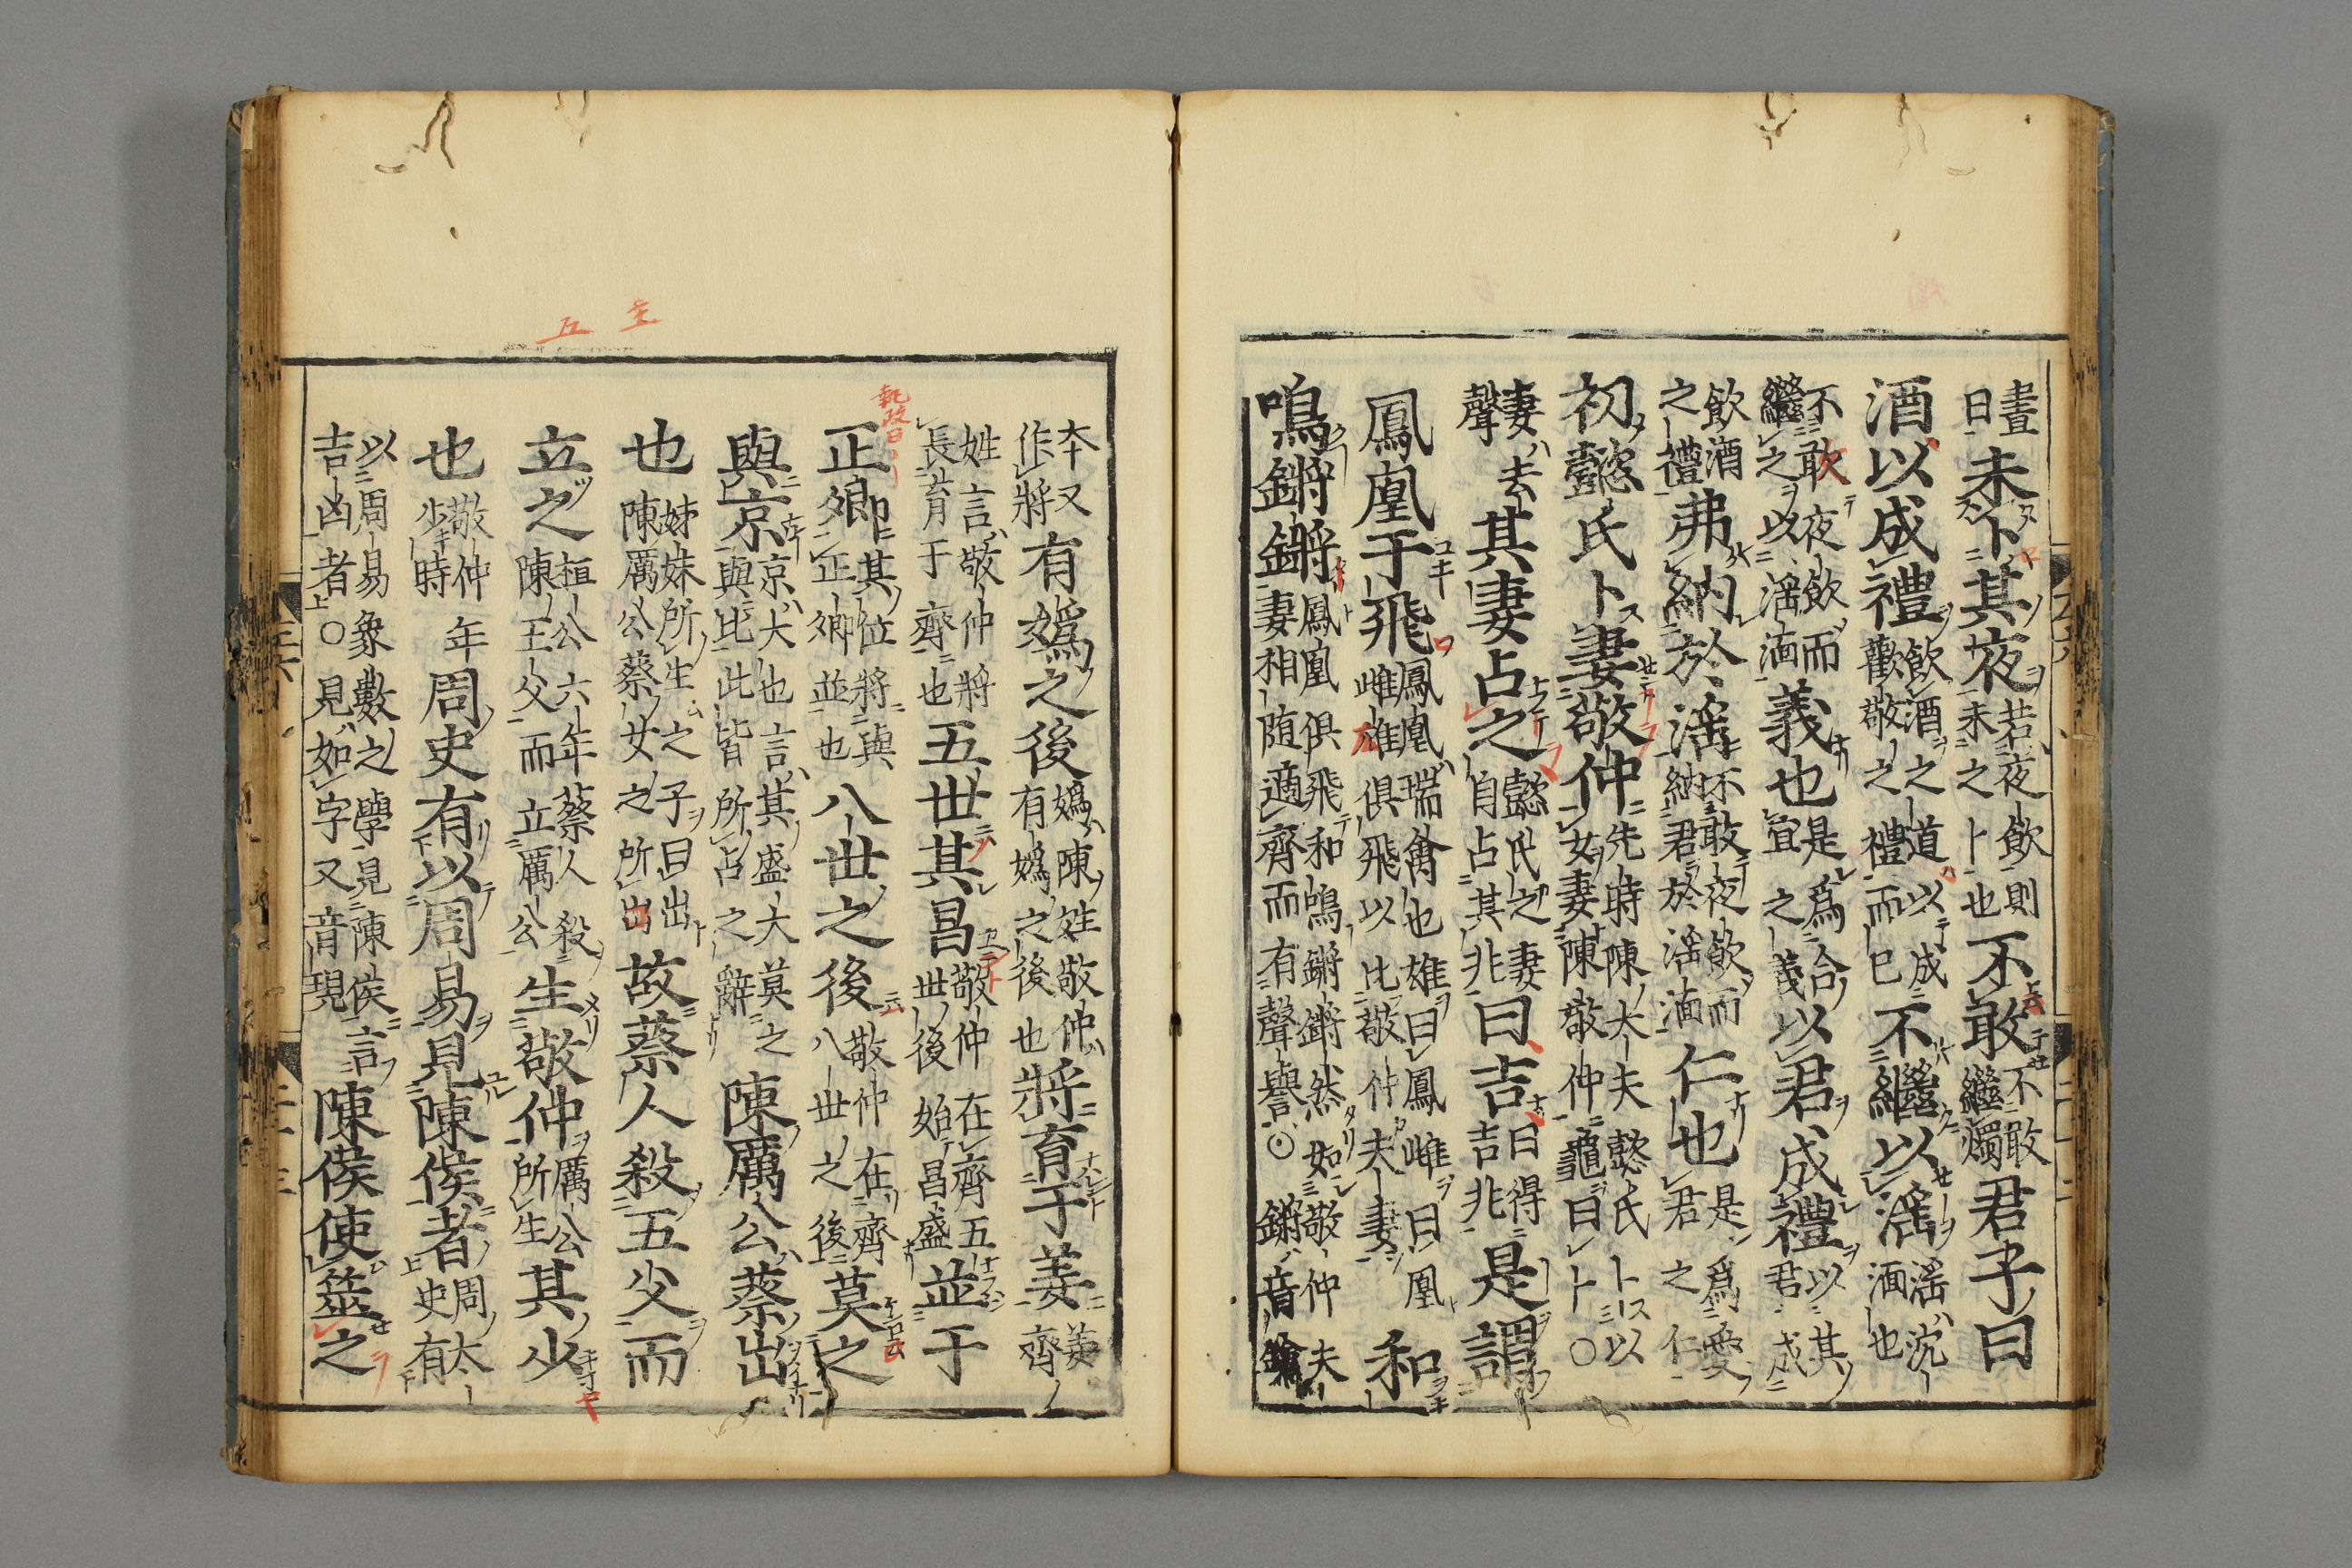 晝日未卜其夜若夜飲則未之卜也不敢不敢繼燭君子曰
酒以成禮飲酒之道以成歡敬之禮而巳不繼以滛滛沈湎也
不敢夜飲而繼之以滛湎義也是爲合宜之義以君成禮以其君成
飲酒之禮弗納於滛不敢夜飲而納君於滛湎仁也是爲愛君之仁
初懿氏卜妻敬仲先時陳大夫懿氏卜以女妻陳敬仲龜曰卜○
妻去聲其妻占之懿氏之妻自占其兆曰吉曰得吉兆是謂
鳳凰于飛鳳凰瑞禽也雄曰鳳雌曰凰雌雄俱飛以比敬仲夫妻和
鳴鏘鏘鳳凰俱飛和鳴鏘鏘然如敬仲夫妻相随適齊而有聲譽○鏘音鎗
本又作將有嬀之後嬀陳姓敬仲有嬀之後也將育于姜姜齊
姓言敬仲將長育于齊也五世其昌敬仲在齊五世後始昌盛並于
正卿即其位將與正卿並也八世之後敬仲在齊八世之後莫之
與京京大也言其盛大莫之與比此皆所占之辭陳厲公蔡出
也姊妹所生之子曰出陳厲公蔡女之所出故蔡人殺五父而
立之桓公六年蔡人殺陳王父而立厲公生敬仲厲公所生其少
也敬仲年少時周史有以周易見陳侯者周太史有
以周易象數之學見陳侯言吉凶者○見如字又音現陳侯使筮之